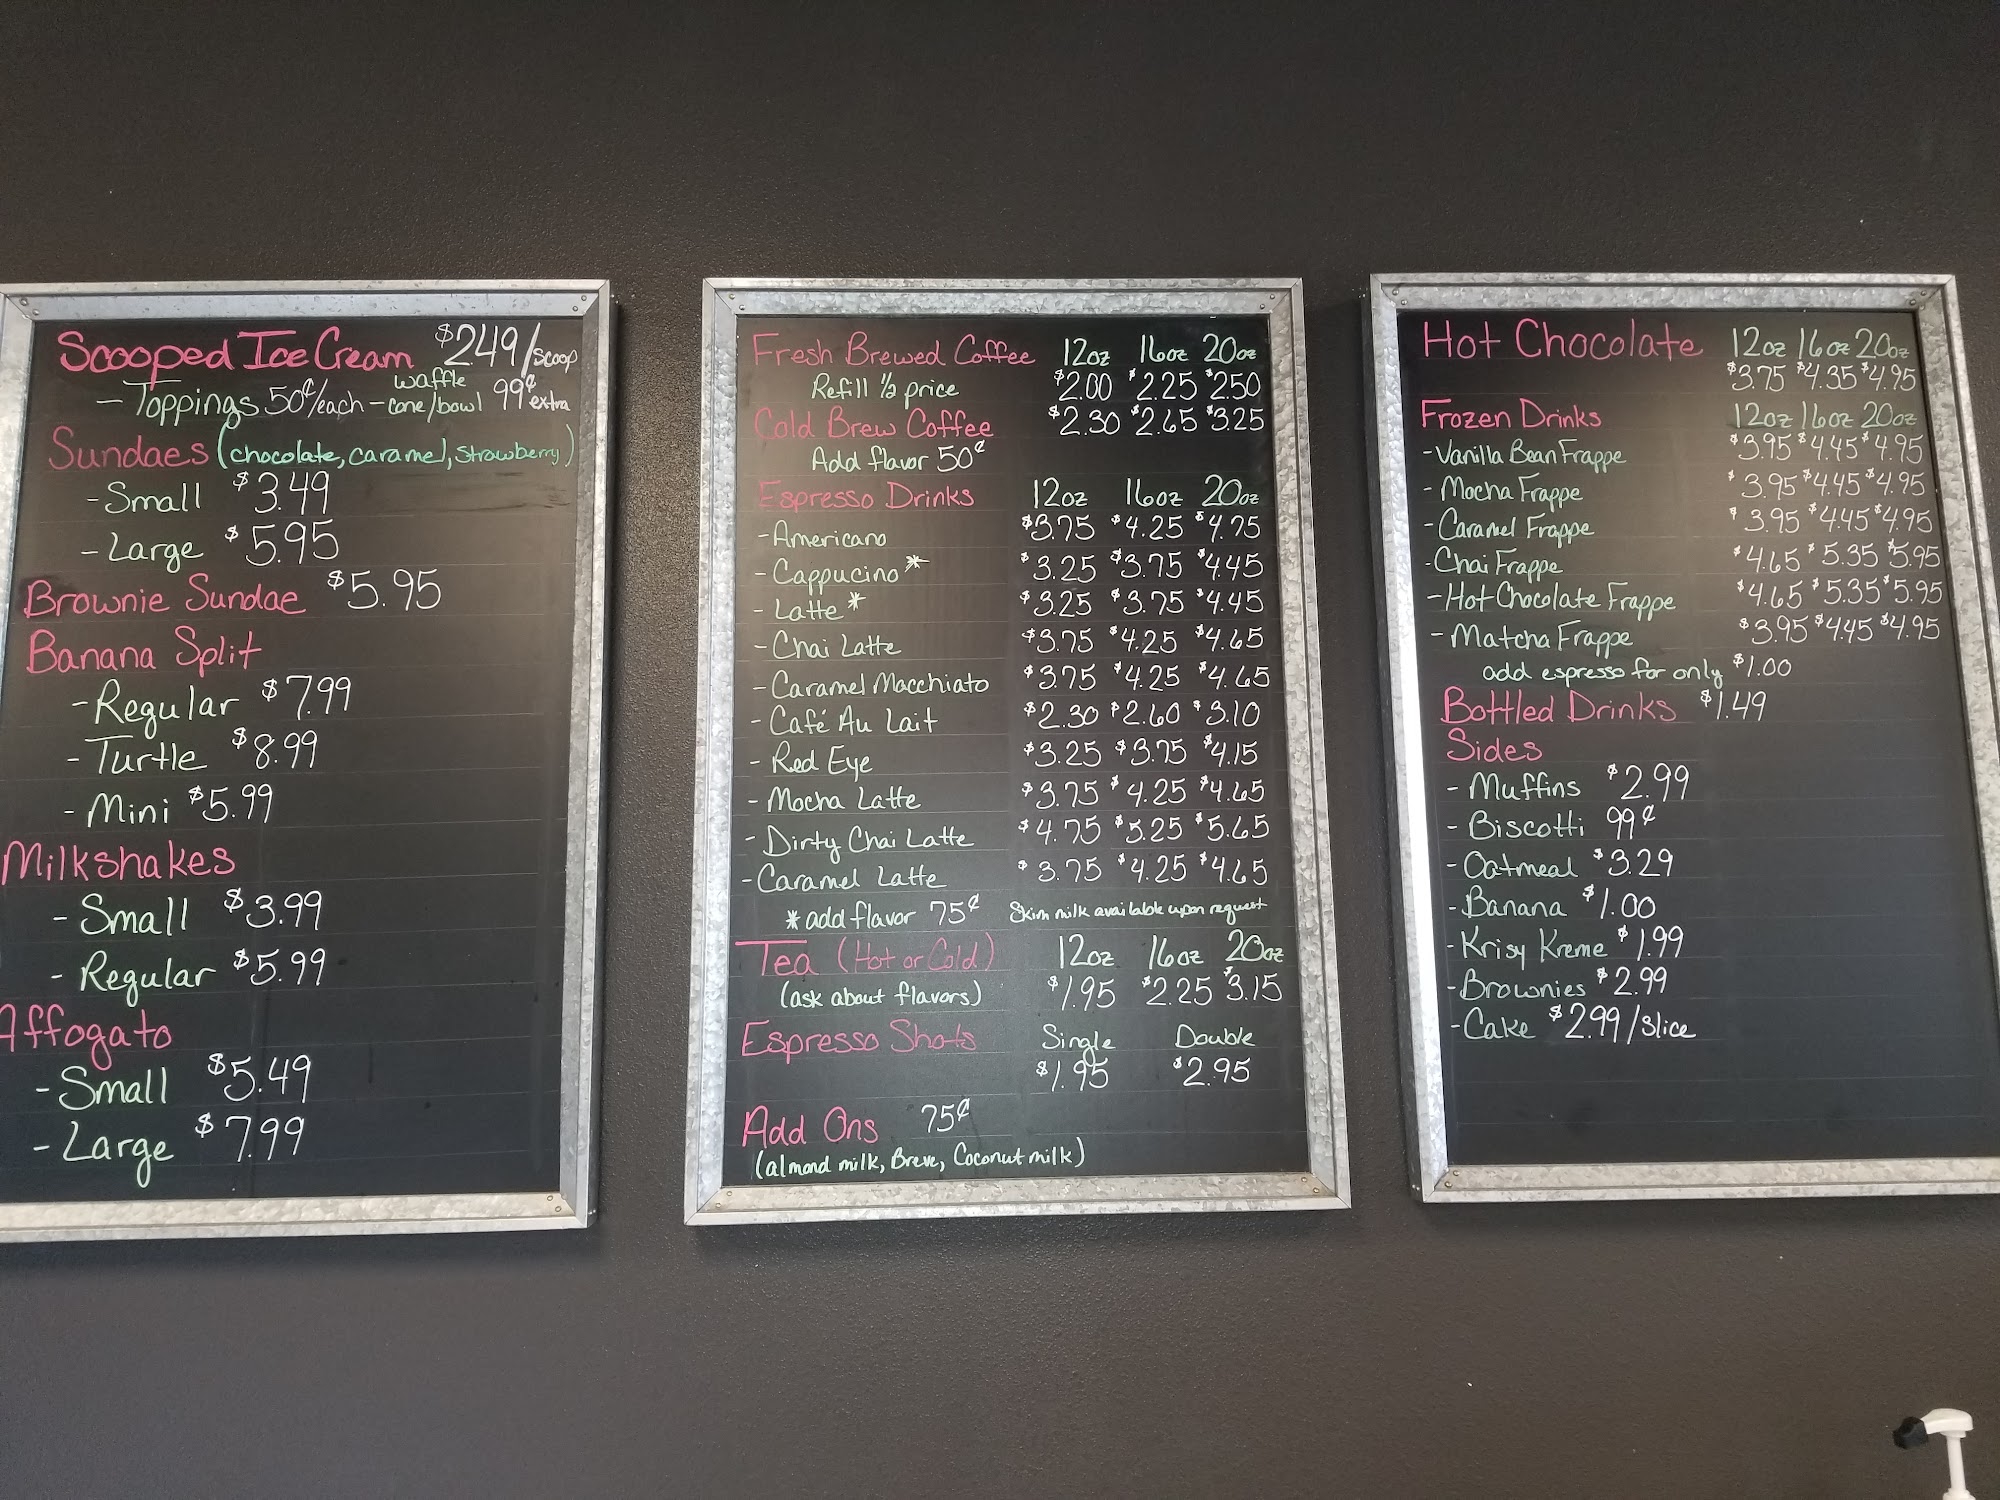 Scooped Ice Cream $2.49/scoop
- Toppings 50¢/each - waffle cone/bowl 99¢ extra
Sundaes (chocolate, caramel, strawberry)
- Small $3.49
- Large $5.95
Brownie Sundae $5.95
Banana Split
- Regular $7.99
- Turtle $8.99
- Mini $5.99
Milkshakes
- Small $3.99
- Regular $5.99
Affogato
- Small $5.49
- Large $7.99
Fresh Brewed Coffee 12oz 16oz 20oz
Refill ½ price $2.00 $2.25 $2.50
Cold Brew Coffee $2.30 $2.65 $3.25
Add flavor 50¢
Espresso Drinks 12oz 16oz 20oz
- Americano $3.75 $4.25 $4.75
- Cappucino* $3.25 $3.75 $4.45
- Latte* $3.25 $3.75 $4.45
- Chai Latte $3.75 $4.25 $4.65
- Caramel Macchiato $3.75 $4.25 $4.65
- Café Au Lait $2.30 $2.60 $3.10
- Red Eye $3.25 $3.75 $4.15
- Mocha Latte $3.75 $4.25 $4.65
- Dirty Chai Latte $4.75 $5.25 $5.65
- Caramel Latte $3.75 $4.25 $4.65
*add flavor 75¢ Skim milk available upon request
Tea (Hot or Cold) 12oz 16oz 20oz
(ask about flavors) $1.95 $2.25 $3.15
Espresso Shots Single Double
$1.95 $2.95
Add Ons 75¢
(almond milk, Breve, Coconut milk)
Hot Chocolate 12oz 16oz 20oz
$3.75 $4.35 $4.95
Frozen Drinks 12oz 16oz 20oz
- Vanilla Bean Frappe $3.95 $4.45 $4.95
- Mocha Frappe $3.95 $4.45 $4.95
- Caramel Frappe $3.95 $4.45 $4.95
- Chai Frappe $4.65 $5.35 $5.95
- Hot Chocolate Frappe $4.65 $5.35 $5.95
- Matcha Frappe $3.95 $4.45 $4.95
add espresso for only $1.00
Bottled Drinks $1.49
Sides
- Muffins $2.99
- Biscotti 99¢
- Oatmeal $3.29
- Banana $1.00
- Krisy Kreme $1.99
- Brownies $2.99
- Cake $2.99/Slice